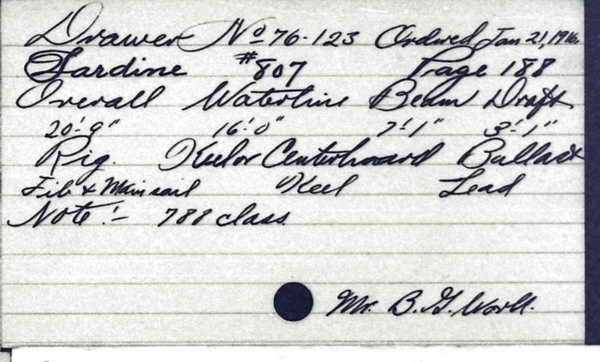 Drawer No 76-123 Ordered Jan 21, 1916
Sardine #807 Page 188
Overall Waterline Beam Draft
20'-9" 16'-0" 7'-1" 3'-1"
Rig. Keel or Centerboard Ballast
Jib & Mainsail Keel Lead
Note:- 788 class
Mr. B. G. Work.